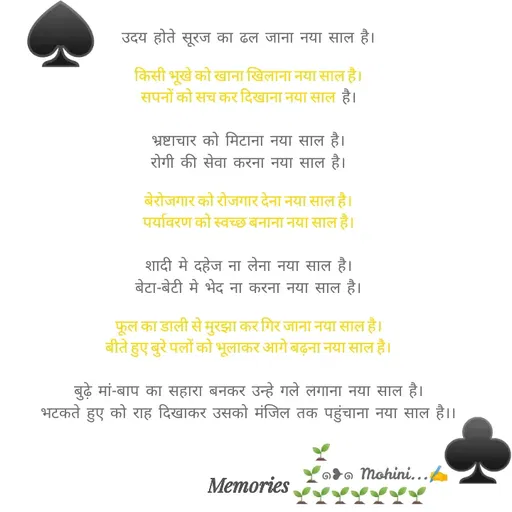 उदय होते सूरज का ढल जाना नया साल है।
किसी भूखे को खाना खिलाना नया साल है।
सपनों को सच कर दिखाना नया साल है।
भ्रष्टाचार को मिटाना नया साल है।
रोगी की सेवा करना नया साल है।
बेरोजगार को रोजगार देना नया साल है।
पर्यावरण को स्वच्छ बनाना नया साल है।
शादी मे दहेज ना लेना नया साल है।
बेटा-बेटी मे भेद ना करना नया साल है।
फूल का डाली से मुरझा कर गिर जाना नया साल है।
बीते हुए बुरे पलों को भूलाकर आगे बढ़ना नया साल है।
बुढ़े मां-बाप का सहारा बनकर उन्हे गले लगाना नया साल है।
भटकते हुए को राह दिखाकर उसको मंजिल तक पहुंचाना नया साल है।।
๑❥๑ Mohini...✍
Memories